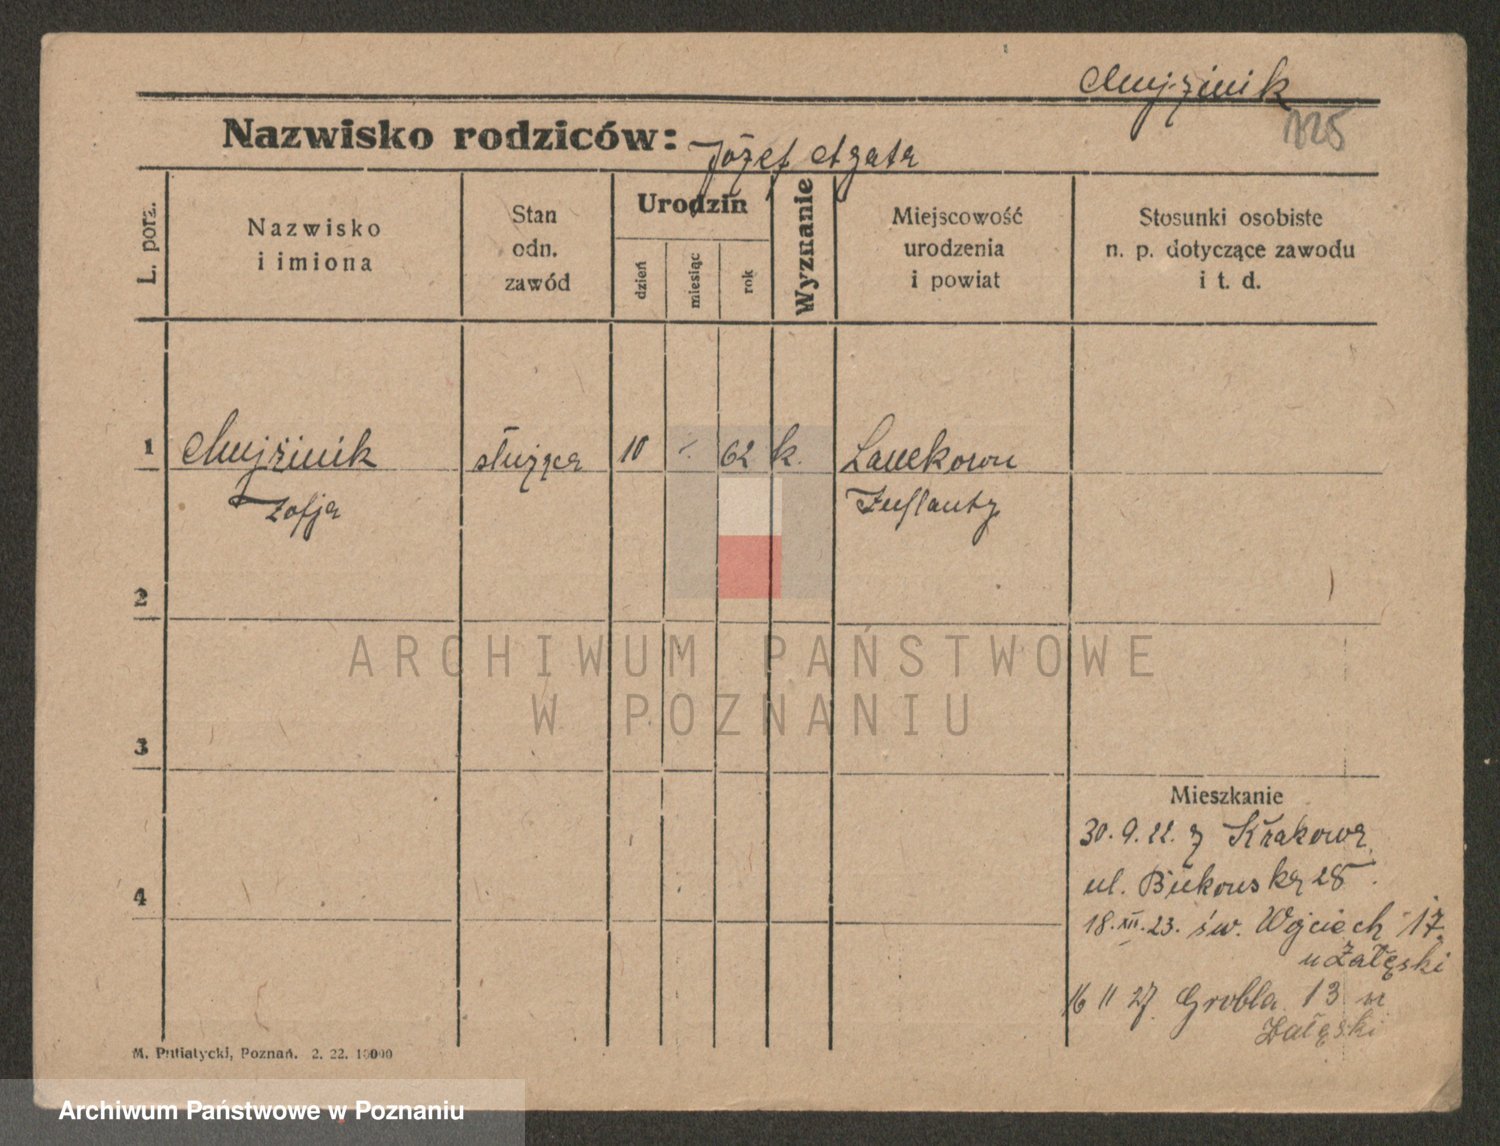 Nazwisko rodziców: Józef Agata
L. porz.
Nazwisko
i imiona
Stan
odn.
zawód
Urodzin
dzień
miesiąc
rok
Wyznanie
Miejscowość
urodzenia
i powiat
Stosunki osobiste
n. p. dotyczące zawodu
i t. d.
1
służąca
10
62
k.
Zofja
2
3
4
Mieszkanie
30.9.22. z Krakowa
ul. Bukowska 28.
18.XII.23. św. Wojciech 17
u Załęski
16 11 27. Grobla 13 u
Załęski
M. Putiatycki, Poznań. 2. 22. 10000
ARCHIWUM PAŃSTWOWE
W POZNANIU
Archiwum Państwowe w Poznaniu